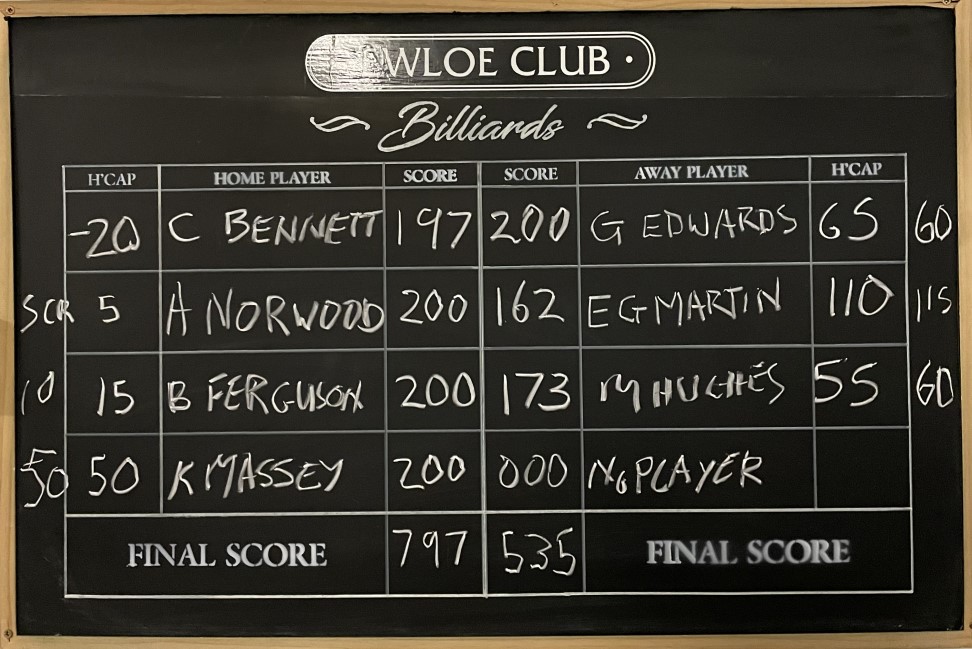 WLOE CLUB ·
Billiards
H'CAP HOME PLAYER SCORE SCORE AWAY PLAYER H'CAP
-20 C BENNETT 197 200 G EDWARDS 65 60
SCR 5 A NORWOOD 200 162 E G MARTIN 110 115
10 15 B FERGUSON 200 173 M HUGHES 55 60
50 50 K MASSEY 200 000 No PLAYER
FINAL SCORE 797 535 FINAL SCORE